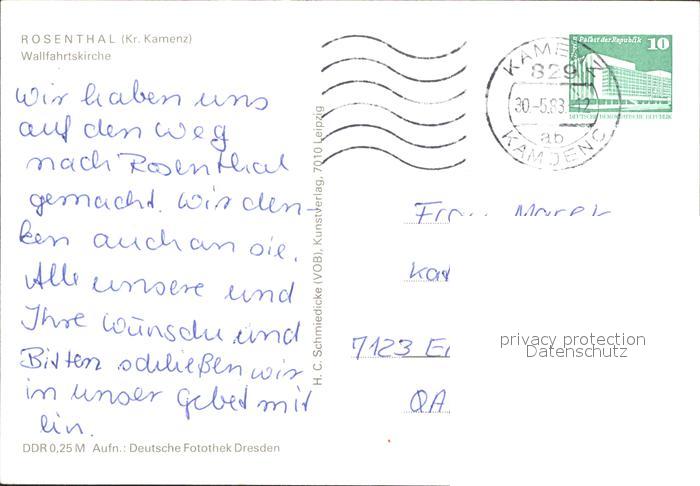 ROSENTHAL (Kr. Kamenz)
Wallfahrtskirche
Wir haben uns
auf den Weg
nach Rosenthal
gemacht. Wir den-
ken auch an sie.
Alle unsere und
Ihre Wünsche und
Bitten schließen wir
in unser Gebet mit
ein.
DDR 0,25 M Aufn.: Deutsche Fotothek Dresden
H. C. Schmiedicke (VOB), Kunstverlag, 7010 Leipzig
KAMENZ
829
30.-5.83.-12
ab
KAMJENC
Palast der Republik 10
DEUTSCHE DEMOKRATISCHE REPUBLIK
7123
privacy protection
Datenschutz